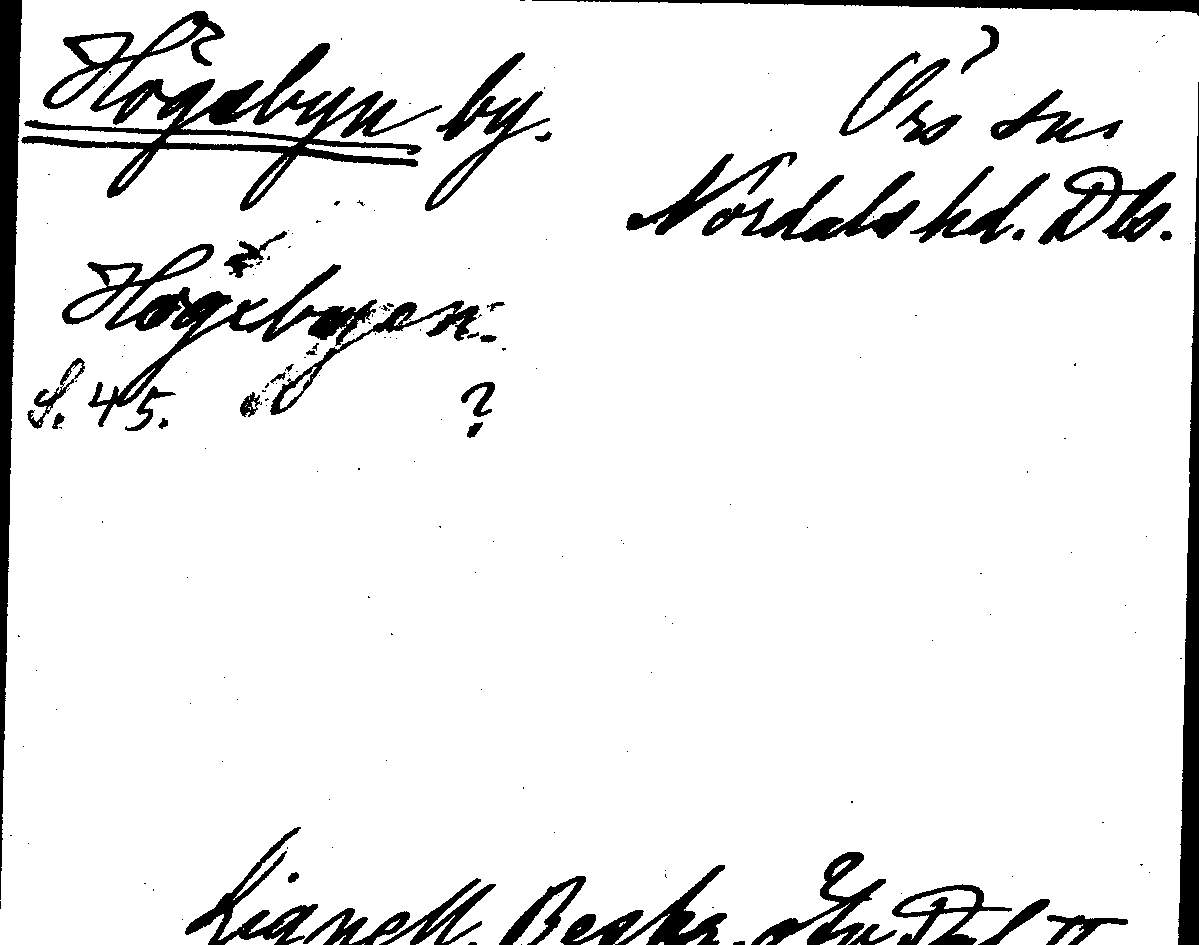 Högsbyn by.
Örs sn.
Nordals hd. Dls.
Högsbyen.
S. 45. ?
Lignell, Beskr. öfv. Dal II